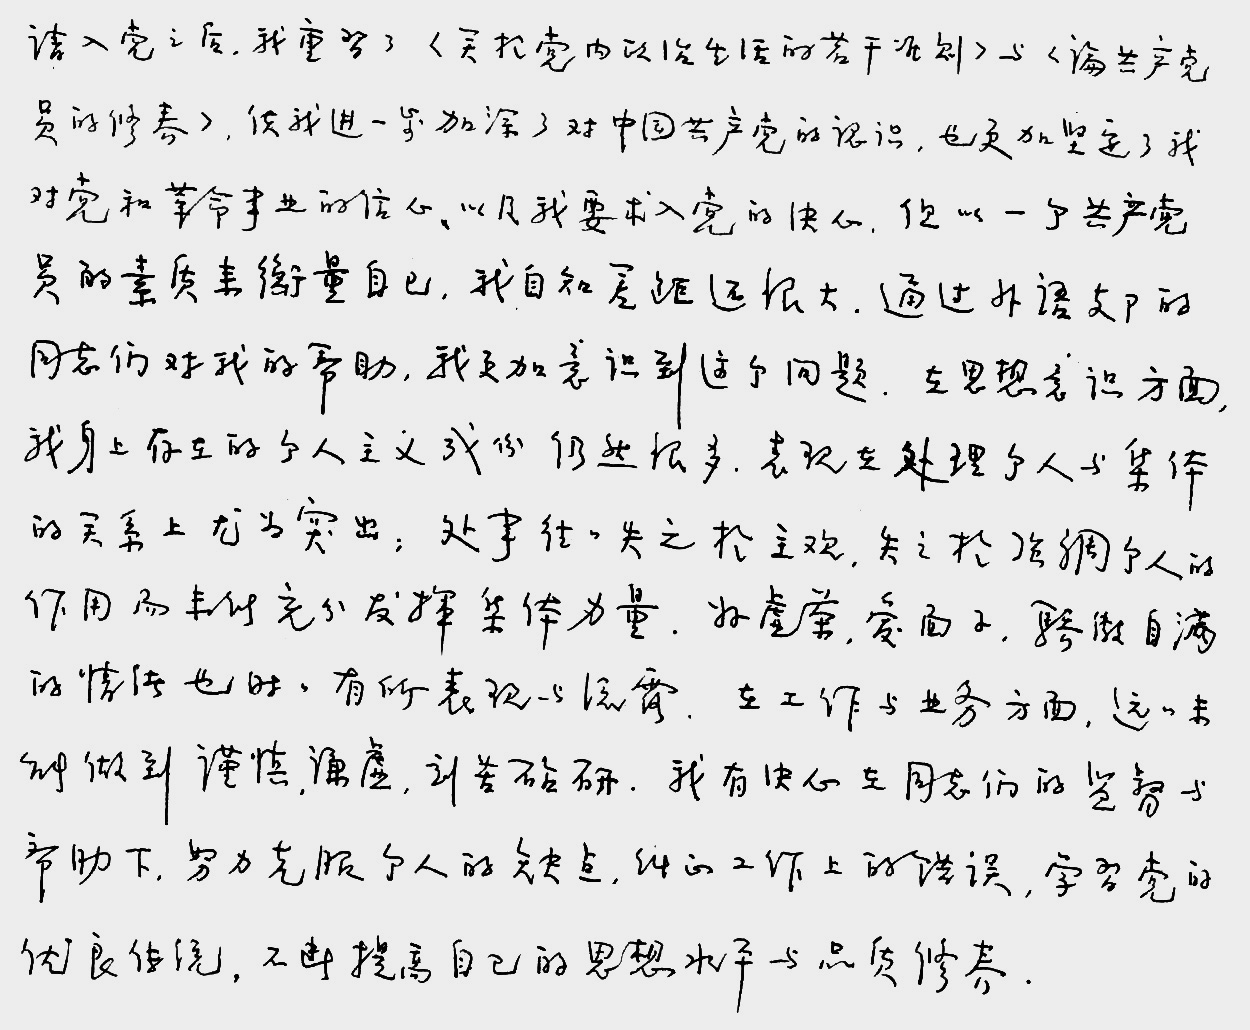 请入党之后，我重习了《关于党内政治生活的若干准则》与《論共产党
员的修养》，使我进一步加深了对中国共产党的認识，也更加坚定了我
对党和革命事业的信心、以及我要求入党的决心。但以一个共产党
员的素质来衡量自己，我自知差距还很大。通过外語部的
同志们对我的帮助，我更加意识到这个问题。在思想意识方面，
我身上存在的个人主义成份仍然很多。表现在处理个人与集体
的关系上尤为突出；处事往々失之于主观，失之于强調个人的
作用而未能充分发揮集体力量。好虚荣，爱面子，驕傲自满
的情绪也时々有所表现与流露。在工作与业务方面，远々未
能做到谨慎，谦虚，刻苦钻研。我有决心在同志们的监督与
帮助下，努力克服个人的缺点，纠正工作上的错误，学习党的
优良传统，不断提高自己的思想水平与品质修养。